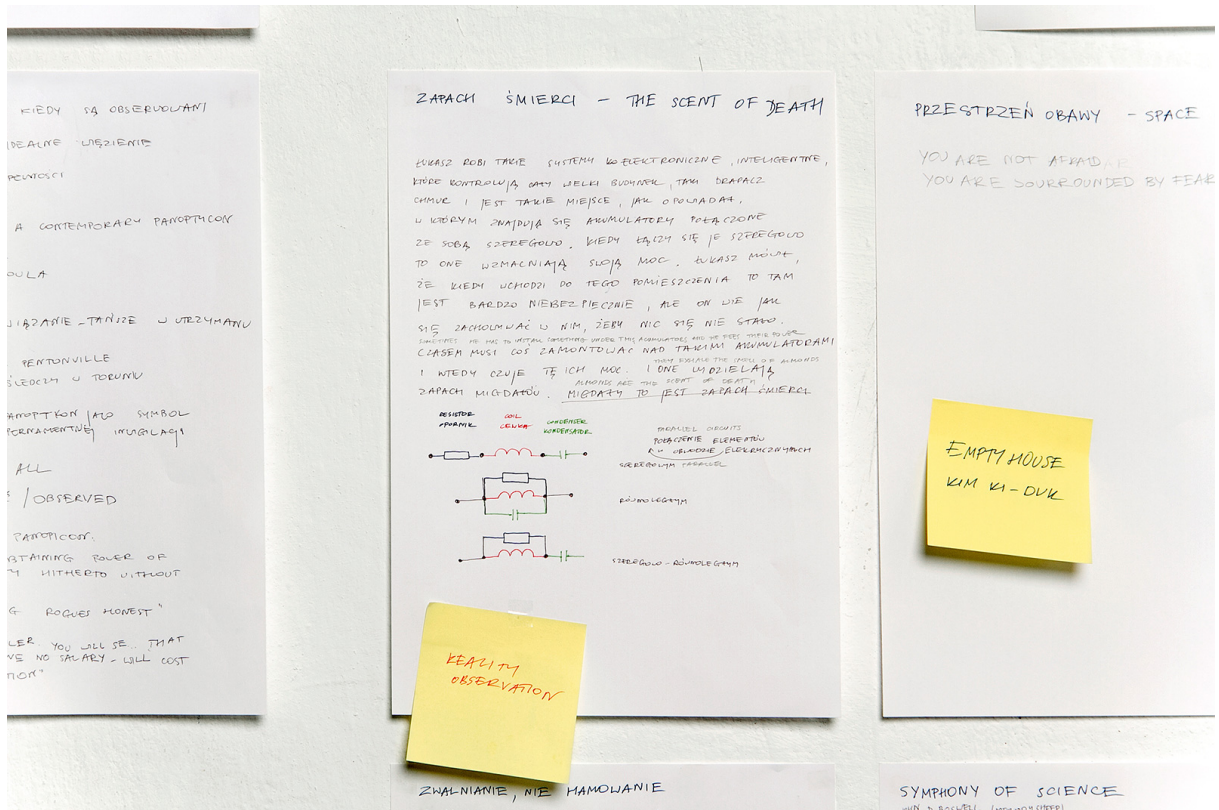 KIEDY SĄ OBSERWOWANI
IDEALNE WIĘZIENIE
PEWNOŚCI
A CONTEMPORARY PANOPTYCON
WIĄZANIE - TAŃSZE W UTRZYMANIU
PENTONVILLE
ŚLEDCZY W TORUNIU
PANOPTKON JAKO SYMBOL
PERMAMENTNEJ INWIGILACJI
ALL
/ OBSERVED
PANOPICON.
OBTAINING POWER OF
HITHERTO WITHOUT
G ROGUES HONEST"
LER YOU WILL SE.. THAT
VE NO SALARY - WILL COST
TION"
ZAPACH ŚMIERCI - THE SCENT OF DEATH
ŁUKASZ ROBI TAKIE SYSTEMY KO ELEKTRONICZNE, INTELIGENTNE,
KTÓRE KONTROLUJĄ CAŁY WIELKI BUDYNEK, TAKI DRAPACZ
CHMUR I JEST TAKIE MIEJSCE, JAK OPOWIADAŁ,
W KTÓRYM ZNAJDUJĄ SIĘ AKUMULATORY POŁĄCZONE
ZE SOBĄ SZEREGOWO. KIEDY ŁĄCZY SIĘ JE SZEREGOWO
TO ONE WZMACNIAJĄ SWOJĄ MOC. ŁUKASZ MÓWIŁ,
ŻE KIEDY WCHODZI DO TEGO POMIESZCZENIA TO TAM
JEST BARDZO NIEBEZPIECZNIE, ALE ON WIE JAK
SIĘ ZACHOWAĆ W NIM, ŻEBY NIC SIĘ NIE STAŁO.
SOMETIMES HE HAS TO INSTALL SOMETHING UNDER THIS ACUMULATORS AND HE FEELS THEIR POWER
CZASEM MUSI COŚ ZAMONTOWAĆ NAD TAKIMI AKUMULATORAMI
THEY EXHALE THE SMELL OF ALMONDS
I WTEDY CZUJE TĘ ICH MOC. I ONE WYDZIELAJĄ
ALMONDS ARE THE SCENT OF DEATH
ZAPACH MIGDAŁÓW. MIGDAŁY TO JEST ZAPACH ŚMIERCI
RESISTOR
OPORNIK
COIL
CEWKA
CONDENSER
KONDENSATOR
PARALLEL CIRCUITS
POŁĄCZENIE ELEMENTÓW
W OBWODZIE ELEKRYCZNYCH
SZEREGOWYM PARALLEL
RÓWNOLEGŁYM
SZEREGOWO - RÓWNOLEGŁYM
REALITY
OBSERVATION
ZWALNIANIE, NIE HAMOWANIE
PRZESTRZEŃ OBAWY - SPACE
YOU ARE NOT AFRAID
YOU ARE SOURROUNDED BY FEAR
EMPTY HOUSE
KIM KI-DUK
SYMPHONY OF SCIENCE